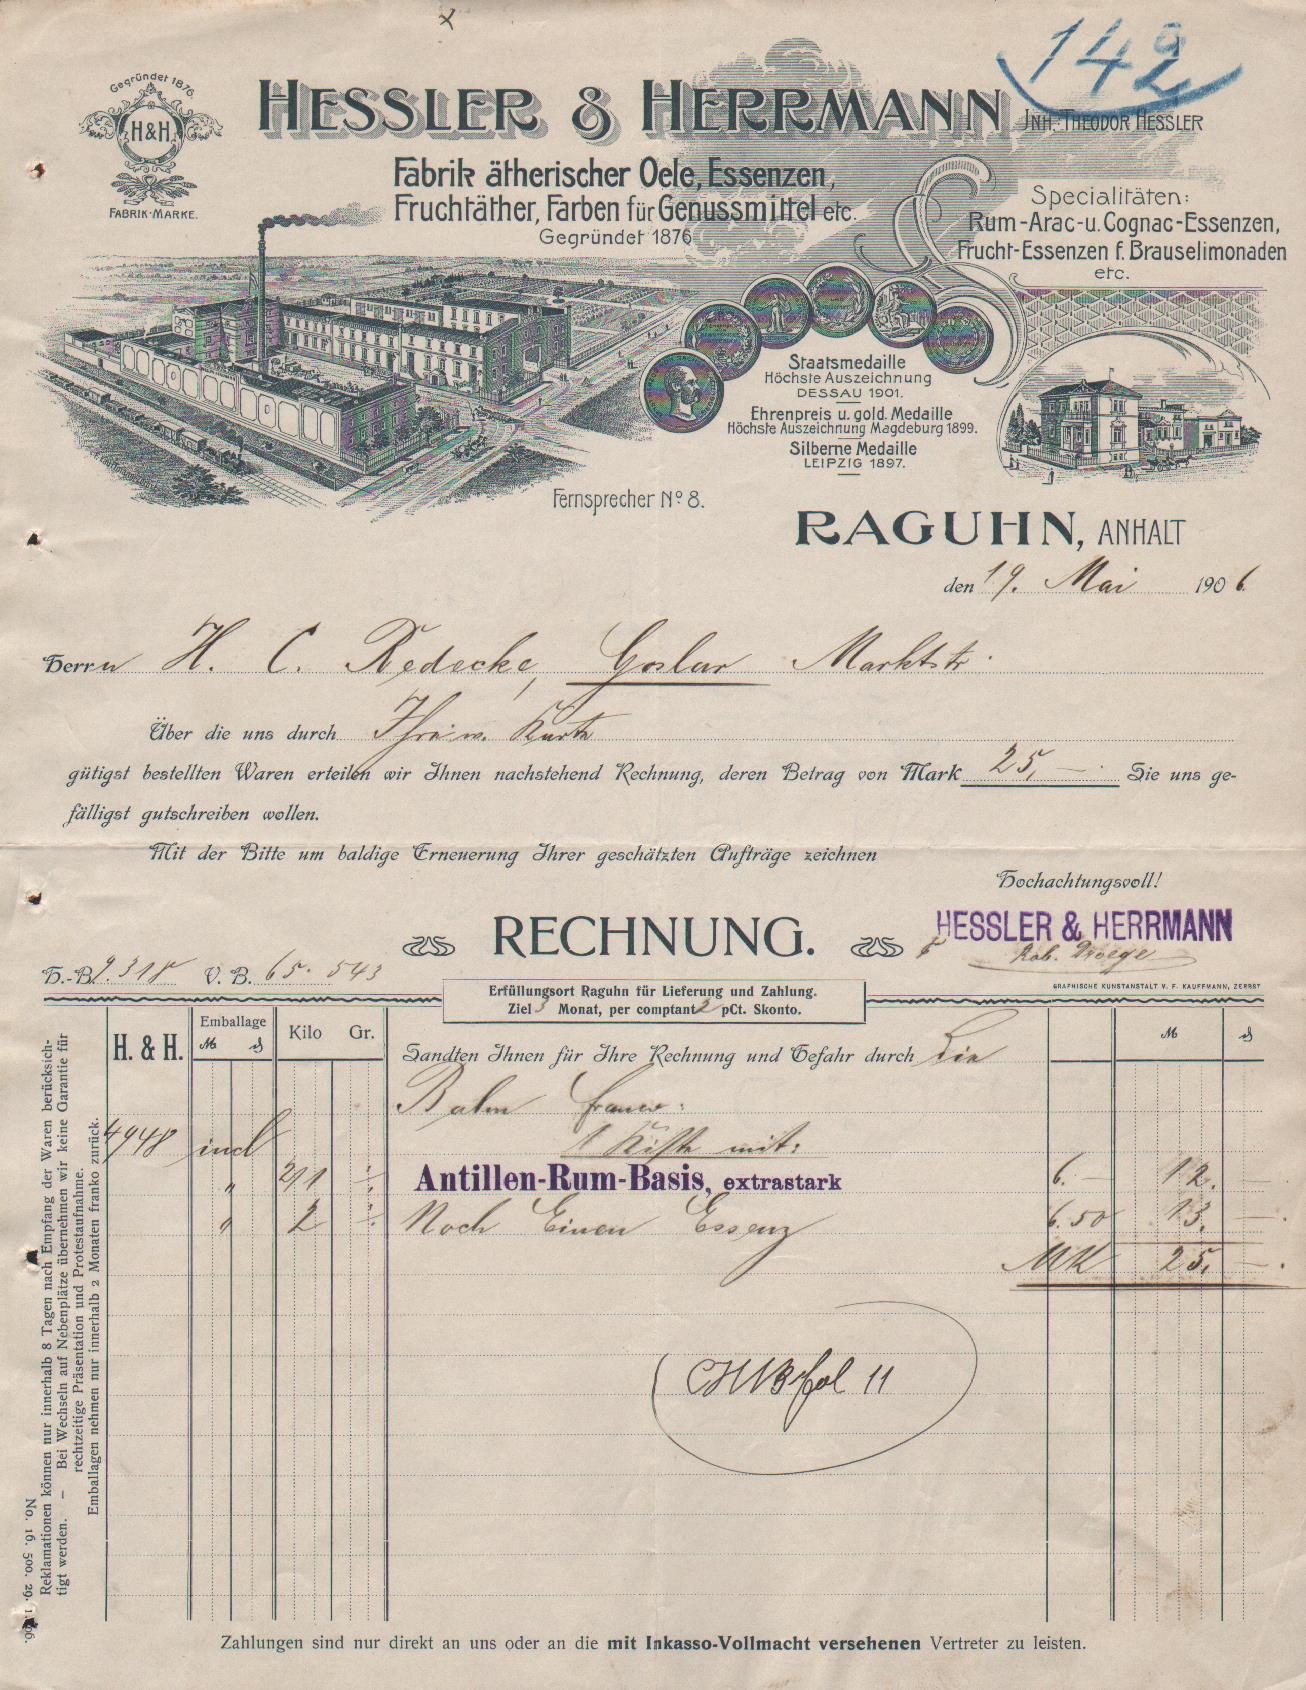 142
Gegründet 1876.
H & H.
FABRIK-MARKE.
HESSLER & HERRMANN
INH.: THEODOR HESSLER
Fabrik ätherischer Oele, Essenzen,
Fruchtäther, Farben für Genussmittel etc.
Gegründet 1876
Specialitäten:
Rum-Arac-u. Cognac-Essenzen,
Frucht-Essenzen f. Brauselimonaden
etc.
Staatsmedaille
Höchste Auszeichnung
DESSAU 1901.
Ehrenpreis u. gold. Medaille
Höchste Auszeichnung Magdeburg 1899.
Silberne Medaille
LEIPZIG 1897.
Fernsprecher Nº 8.
RAGUHN, ANHALT
den 19. Mai 1906.
Herrn H. C. Redecke, Goslar Marktstr.
Über die uns durch Ihre w. Karte
gütigst bestellten Waren erteilen wir Ihnen nachstehend Rechnung, deren Betrag von Mark 25,— Sie uns ge-
fälligst gutschreiben wollen.
Mit der Bitte um baldige Erneuerung Ihrer geschätzten Aufträge zeichnen
Hochachtungsvoll!
RECHNUNG.
HESSLER & HERRMANN
H.-B. 9.318 V. B. 65.543
GRAPHISCHE KUNSTANSTALT V. F. KAUFFMANN, ZERBST
Erfüllungsort Raguhn für Lieferung und Zahlung.
Ziel 3 Monat, per comptant 2 pCt. Skonto.
H. & H. Emballage M ₰ Kilo Gr. M ₰
Sandten Ihnen für Ihre Rechnung und Gefahr durch die
Bahn franco:
4948 incl 1 Kiste mit:
" 2/1 Antillen-Rum-Basis, extrastark 6.— 12.—
" 2 Noch Einen Essenz 6.50 13.—
MK 25,—.
fol 11
Reklamationen können nur innerhalb 8 Tagen nach Empfang der Waren berücksich-
tigt werden. — Bei Wechseln auf Nebenplätze übernehmen wir keine Garantie für
rechtzeitige Präsentation und Protestaufnahme.
Emballagen nehmen nur innerhalb 2 Monaten franko zurück.
No. 16. 500. 29. 1. 06.
Zahlungen sind nur direkt an uns oder an die mit Inkasso-Vollmacht versehenen Vertreter zu leisten.